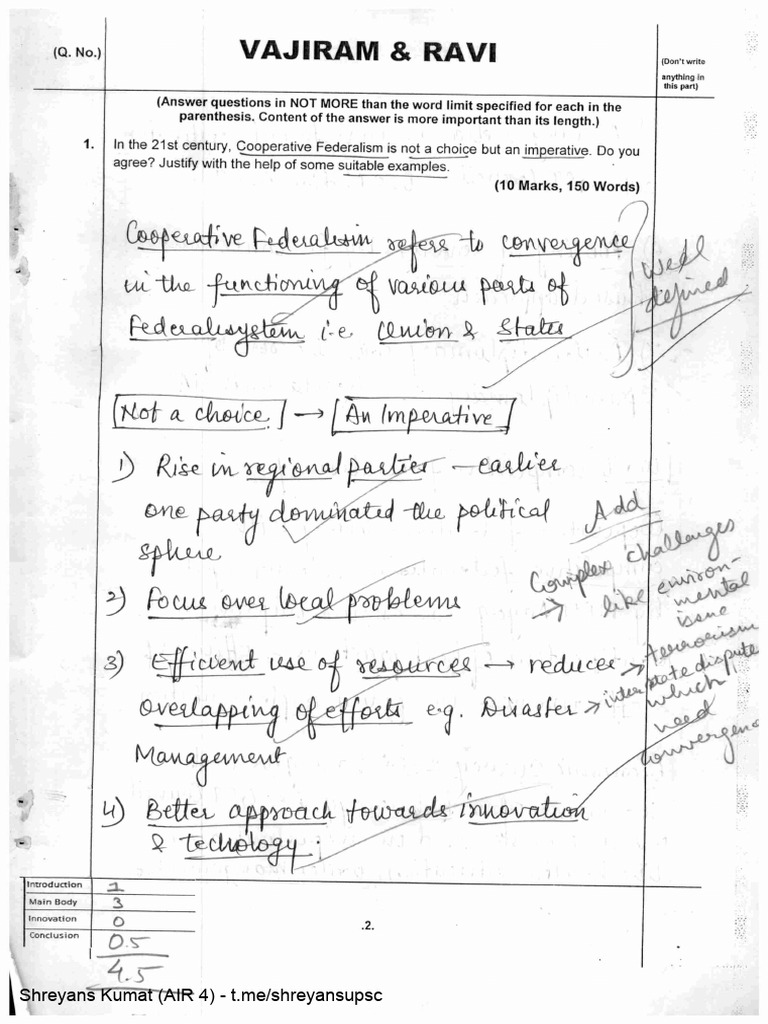 (Q. No.)
VAJIRAM & RAVI
(Don't write
anything in
this part)
(Answer questions in NOT MORE than the word limit specified for each in the
parenthesis. Content of the answer is more important than its length.)
1. In the 21st century, Cooperative Federalism is not a choice but an imperative. Do you
agree? Justify with the help of some suitable examples.
(10 Marks, 150 Words)
Cooperative Federalism refers to convergence
in the functioning of various parts of
Federal system i.e Union & States
Well
defined
Not a choice → An Imperative
1) Rise in regional parties — earlier
one party dominated the political
sphere
2) Focus over local problems
3) Efficient use of resources → reduces
overlapping of efforts e.g. Disaster
Management
4) Better approach towards innovation
& techology.
Add
Complex challanges
→ like environ-
mental
issue
→ terrorism
→ inter state dispute
which
need
convergence
Introduction 1
Main Body 3
Innovation 0
Conclusion 0.5
4.5
.2.
Shreyans Kumat (AIR 4) - t.me/shreyansupsc